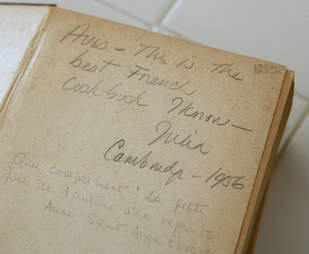 Avis - This is the
best French
cookbook I know -
Julia
Cambridge - 1956
compliment! La petite
fille de l'auteur s'en réjouit
Anne Saint-Ange